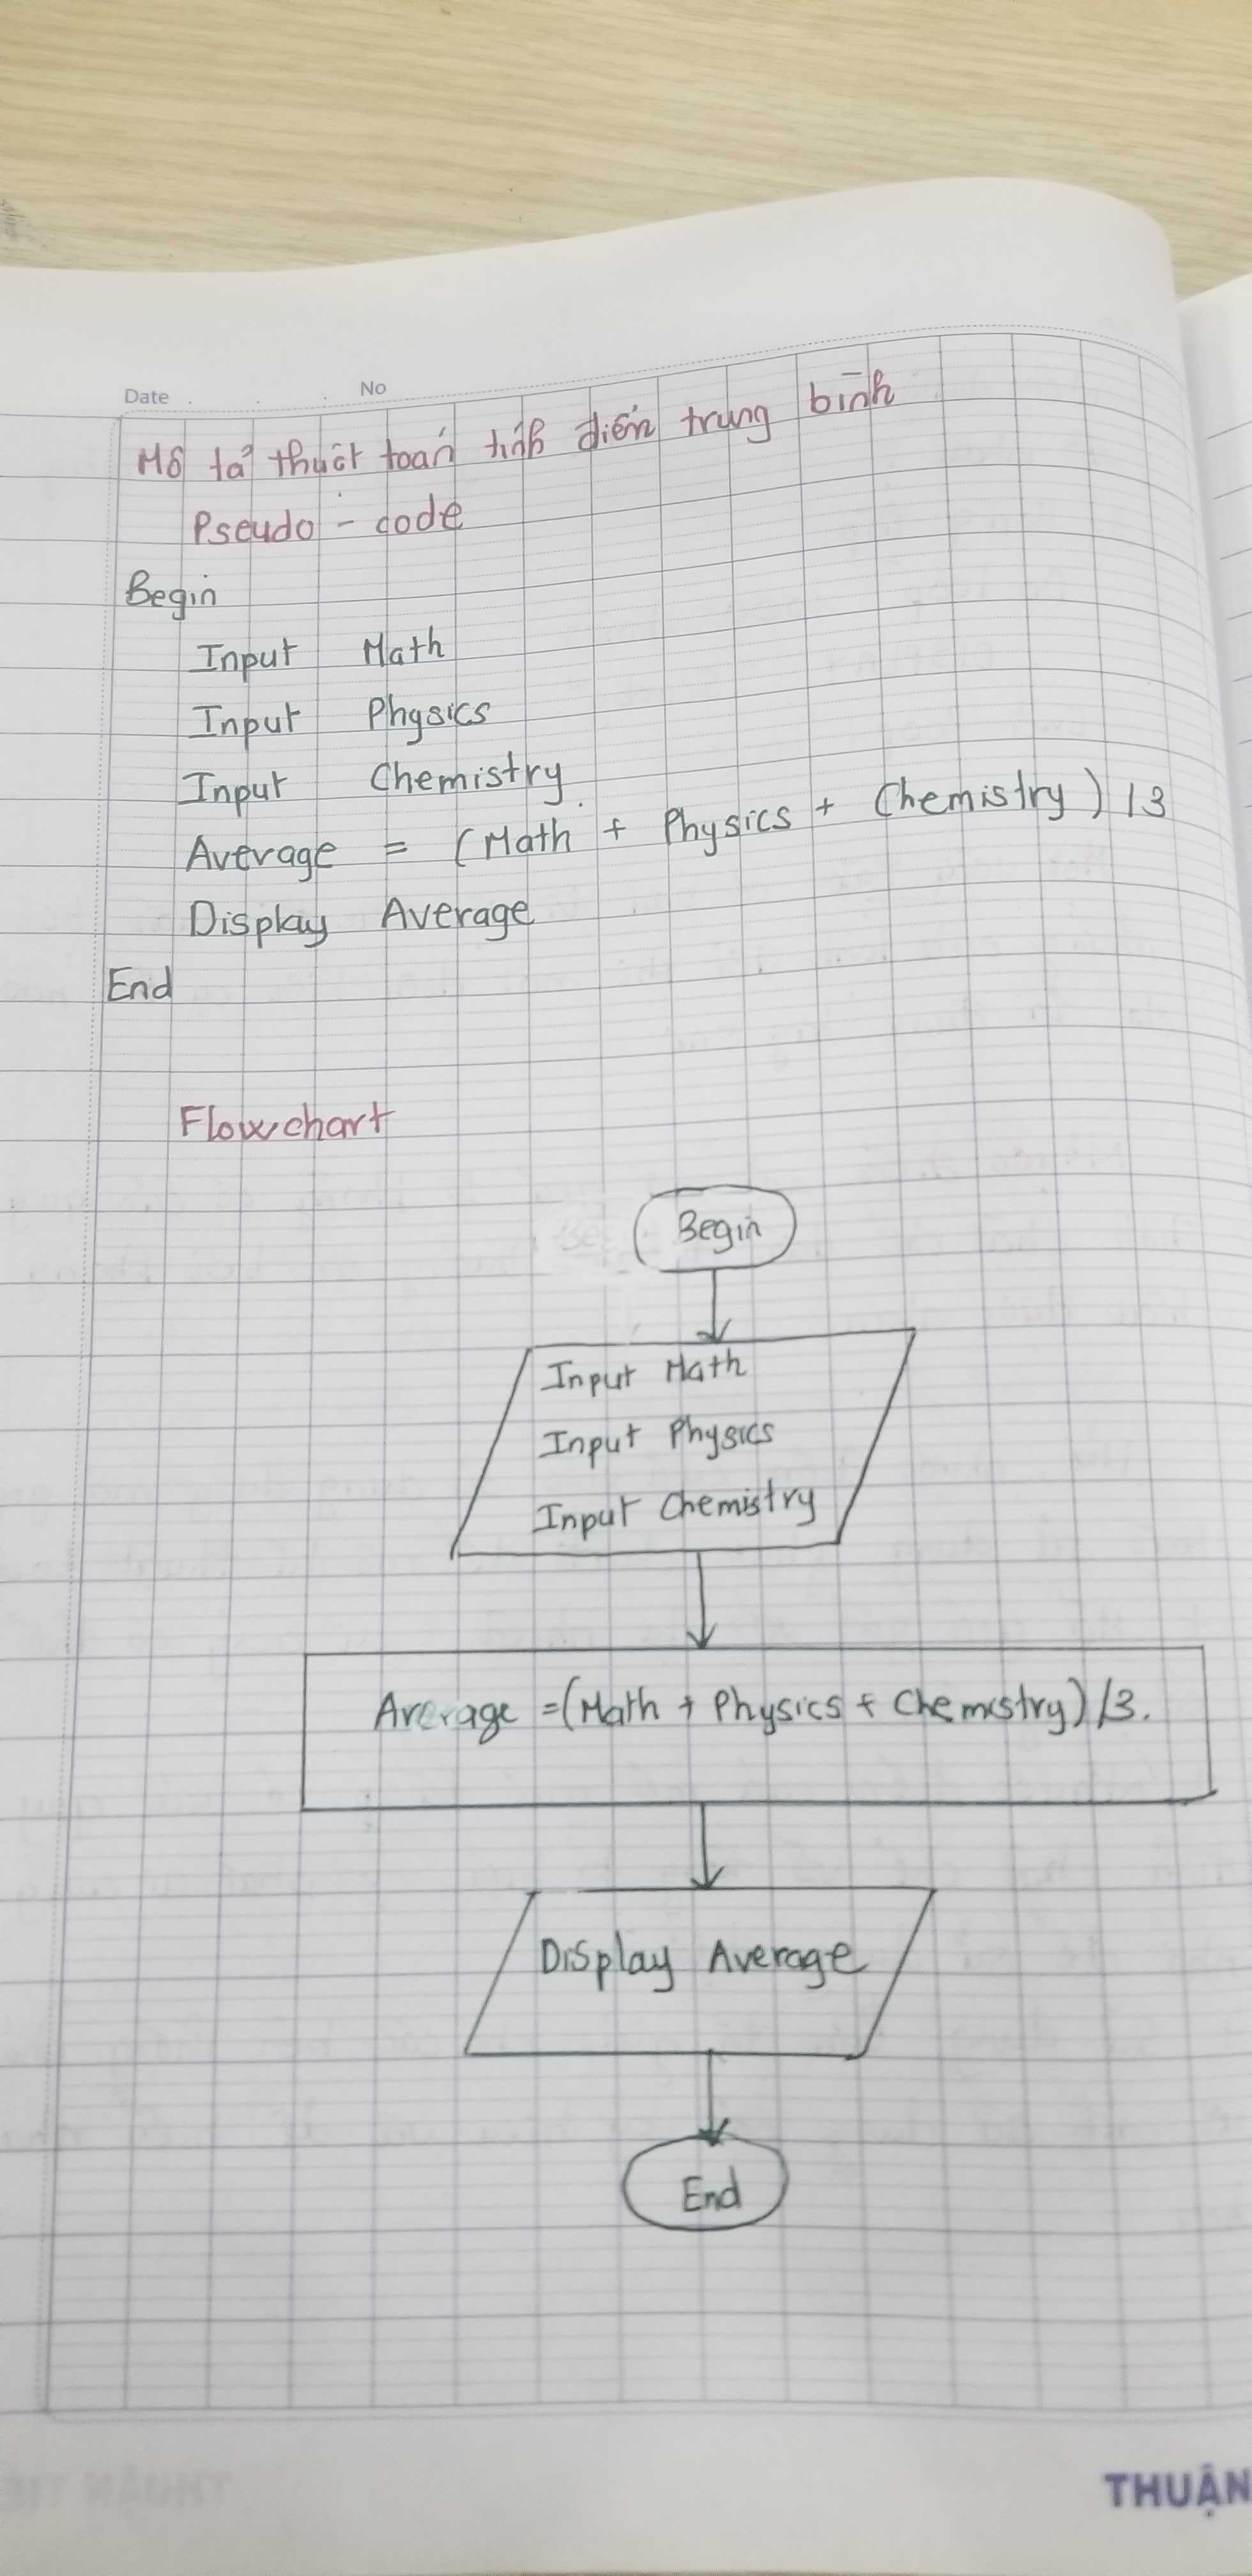 Date . . . No
Mô tả thuật toán tính điểm trung bình
Pseudo - code
Begin
Input Math
Input Physics
Input Chemistry
Average = (Math + Physics + Chemistry) /3
Display Average
End
Flowchart
Begin
Input Math
Input Physics
Input Chemistry
Average = (Math + Physics + Chemistry) /3.
Display Average
End
THUẬN